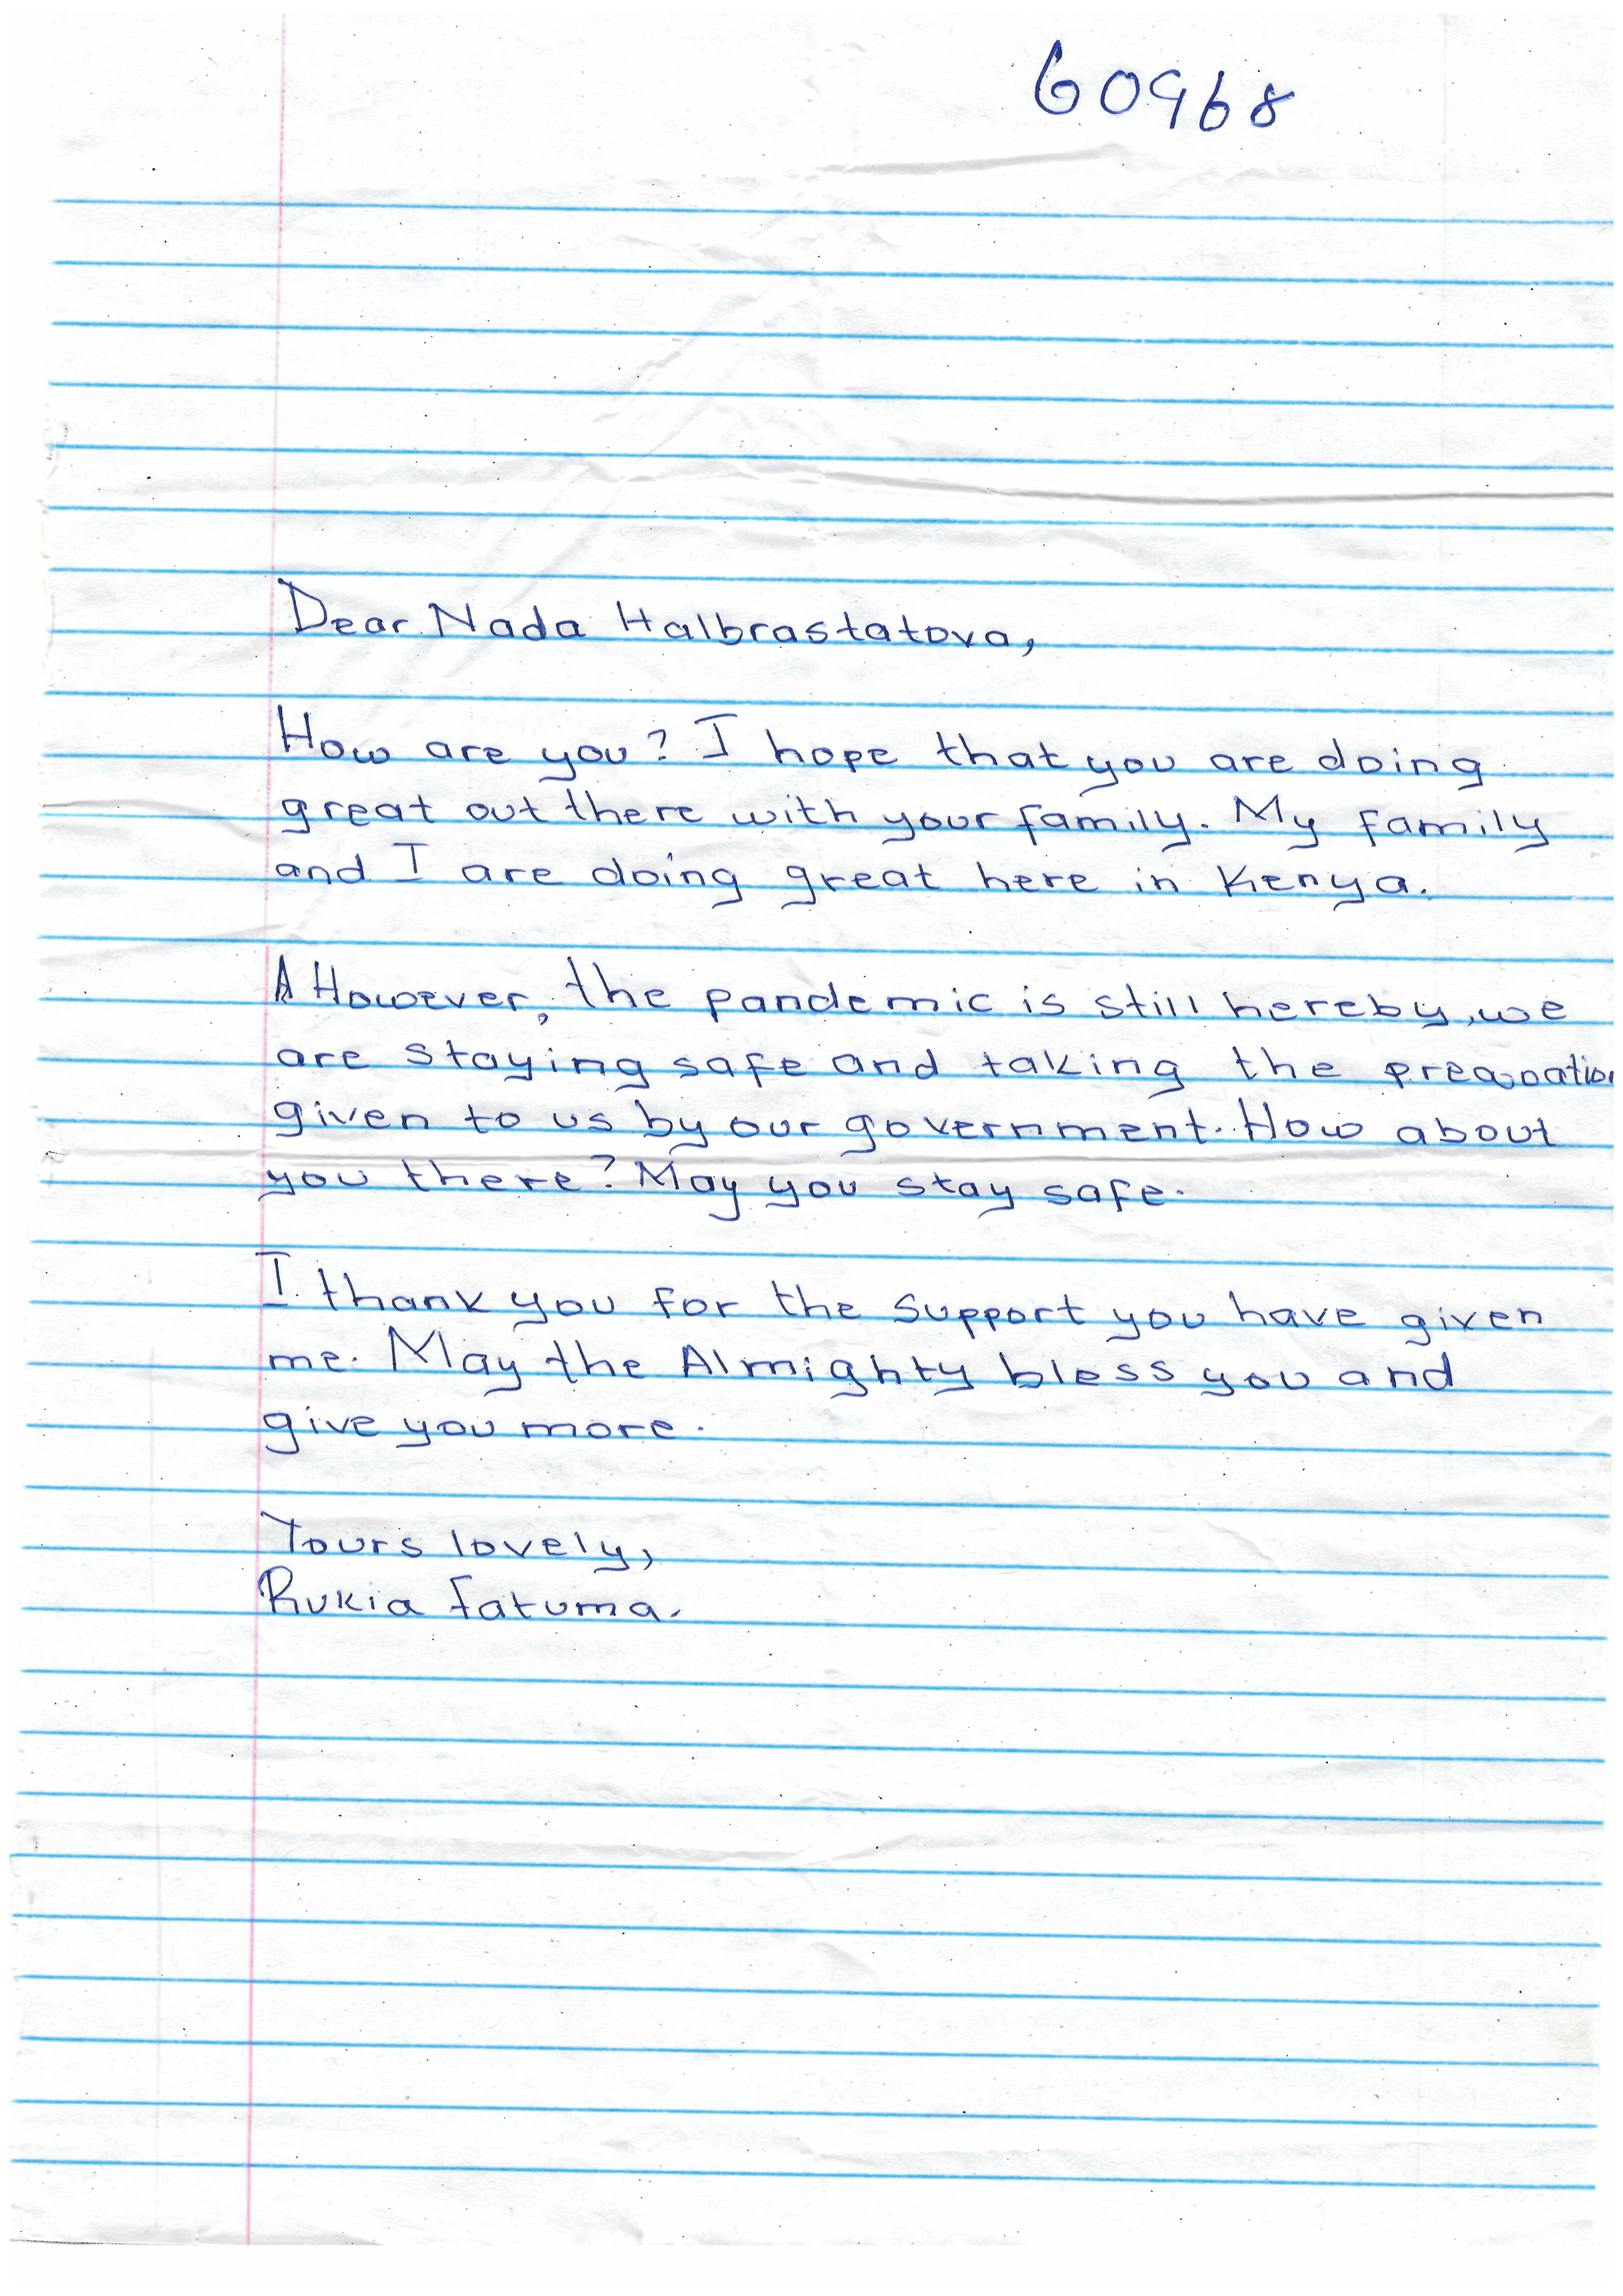 60968
Dear Nada Halbrastatova,
How are you? I hope that you are doing
great out there with your family. My family
and I are doing great here in Kenya.
However, the pandemic is still hereby, we
are staying safe and taking the
given to us by our government. How about
you there? May you stay safe.
I thank you for the support you have given
me. May the Almighty bless you and
give you more.
Yours lovely,
Rukia Fatuma.